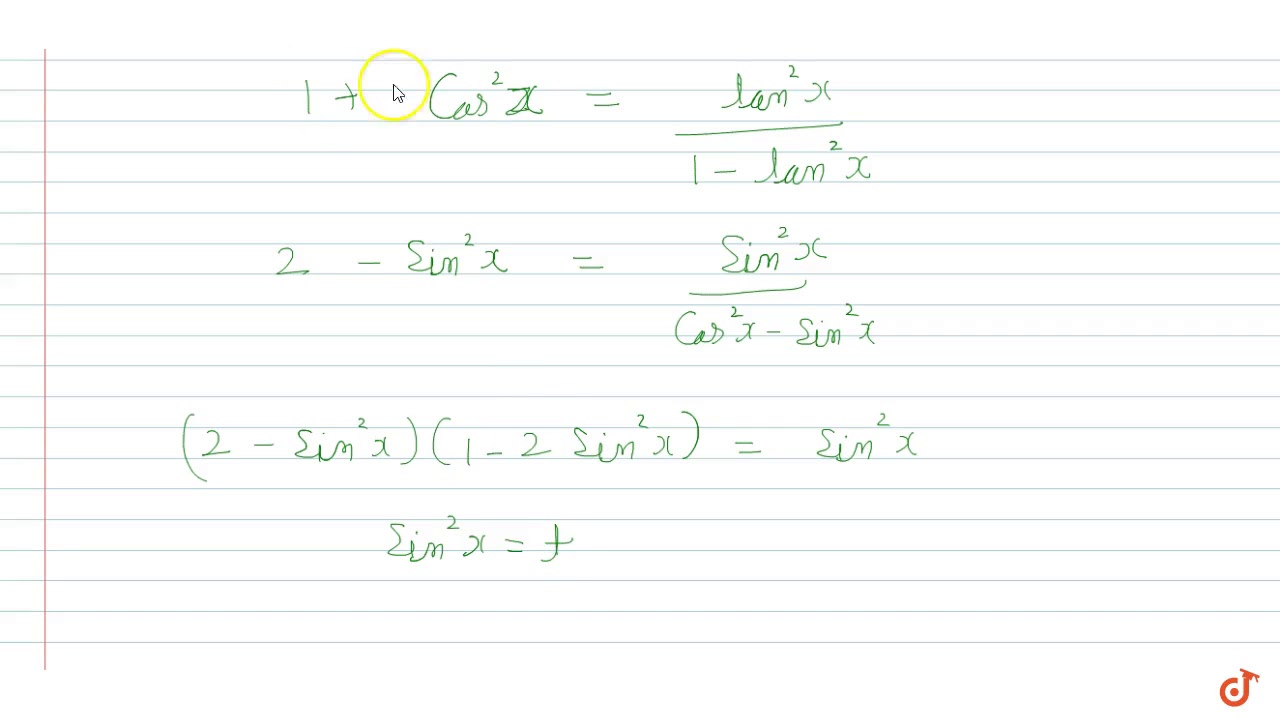 1 + Cos²x = tan²x / 1 - tan²x
2 - Sin²x = Sin²x / Cos²x - Sin²x
(2 - Sin²x)(1 - 2 Sin²x) = Sin²x
Sin²x = t